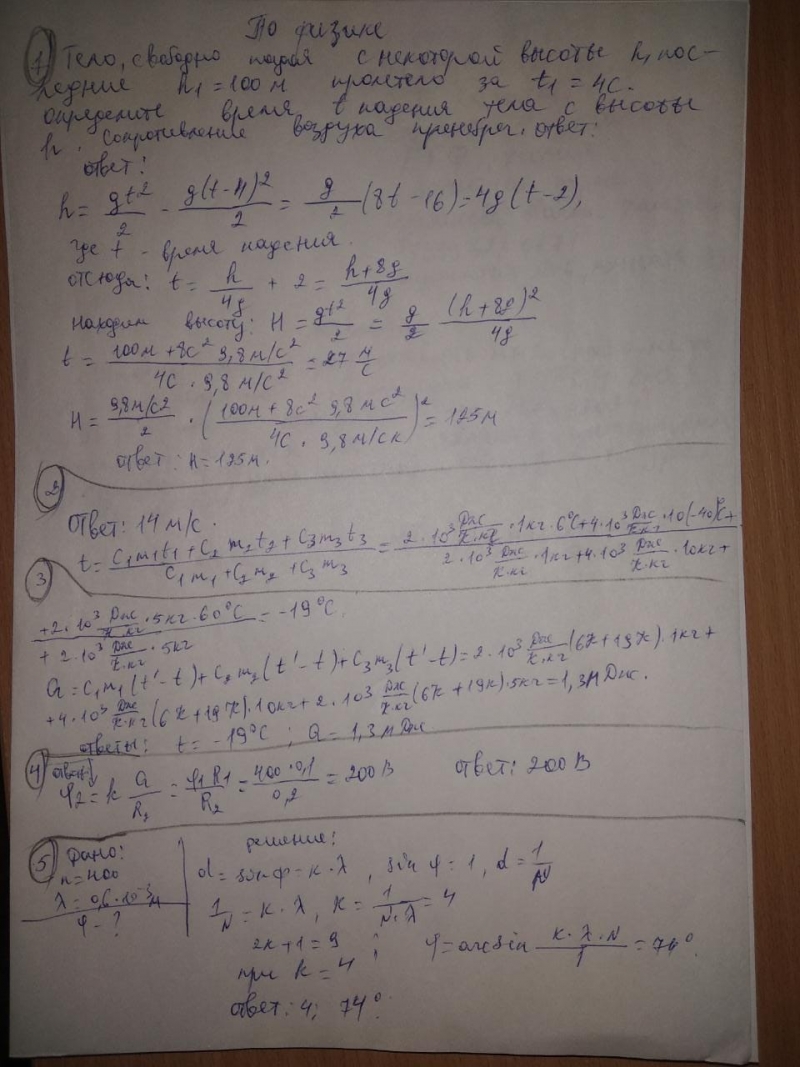 По физике
1) Тело, свободно падая с некоторой высоты h, пос-
ледние h₁ = 100 м пролетело за t₁ = 4с.
определите время t падения тела с высоты
h. Сопротивление воздуха пренебреч. ответ:
ответ:
h = gt²/2 - g(t-4)²/2 = g/2 (8t - 16) = 4g(t-2),
где t - время падения.
отсюда: t = h/4g + 2 = (h+8g)/4g
находим высоту: H = gt²/2 = g/2 (h+8g)²/4g
t = (100м + 8с² 9,8 м/с²)/(4с · 9,8 м/с²) = 27 м/с
H = (9,8м/с2)/2 · ((100м + 8с² 9,8 мс²)/(4с · 9,8м/ск))² = 125м
ответ: H = 125м.
2
Ответ: 14 м/с.
3 t = (C₁m₁t₁ + C₂m₂t₂ + C₃m₃t₃)/(C₁m₁ + C₂m₂ + C₃m₃) = (2·10³ Дж/К·кг · 1кг · 6°C + 4·10³ Дж/К·кг · 10(-40)°C +)/(2·10³ Дж/К·кг · 1кг + 4·10³ Дж/К·кг · 10кг +)
(+2·10³ Дж/К·кг · 5кг · 60°C)/(+ 2·10³ Дж/К·кг · 5кг) = -19°C
Q = C₁m₁(t'-t) + C₂m₂(t'-t) + C₃m₃(t'-t) = 2·10³ Дж/К·кг (6К + 19К)·1кг +
+4·10³ Дж/К·кг (6К + 19К)·10кг + 2·10³ Дж/К·кг (6К + 19К)·5кг = 1,3М Дж.
ответы: t = -19°C ; Q = 1,3 м Дж
4 ответ: φ₂ = k Q/R₂ = φ₁R₁/R₂ = 400·0,1/0,2 = 200 В ответ: 200 В
5 Дано: решение:
n = 400 d = sin φ = к·λ, sin φ = 1, d = 1/N
λ = 0,6·10⁻³м 1/N = к·λ, К = 1/N·λ = 4
φ - ?
2к + 1 = 9 ; φ = arcsin к·λ·N/1 = 74°.
при к = 4
ответ: 4; 74°.